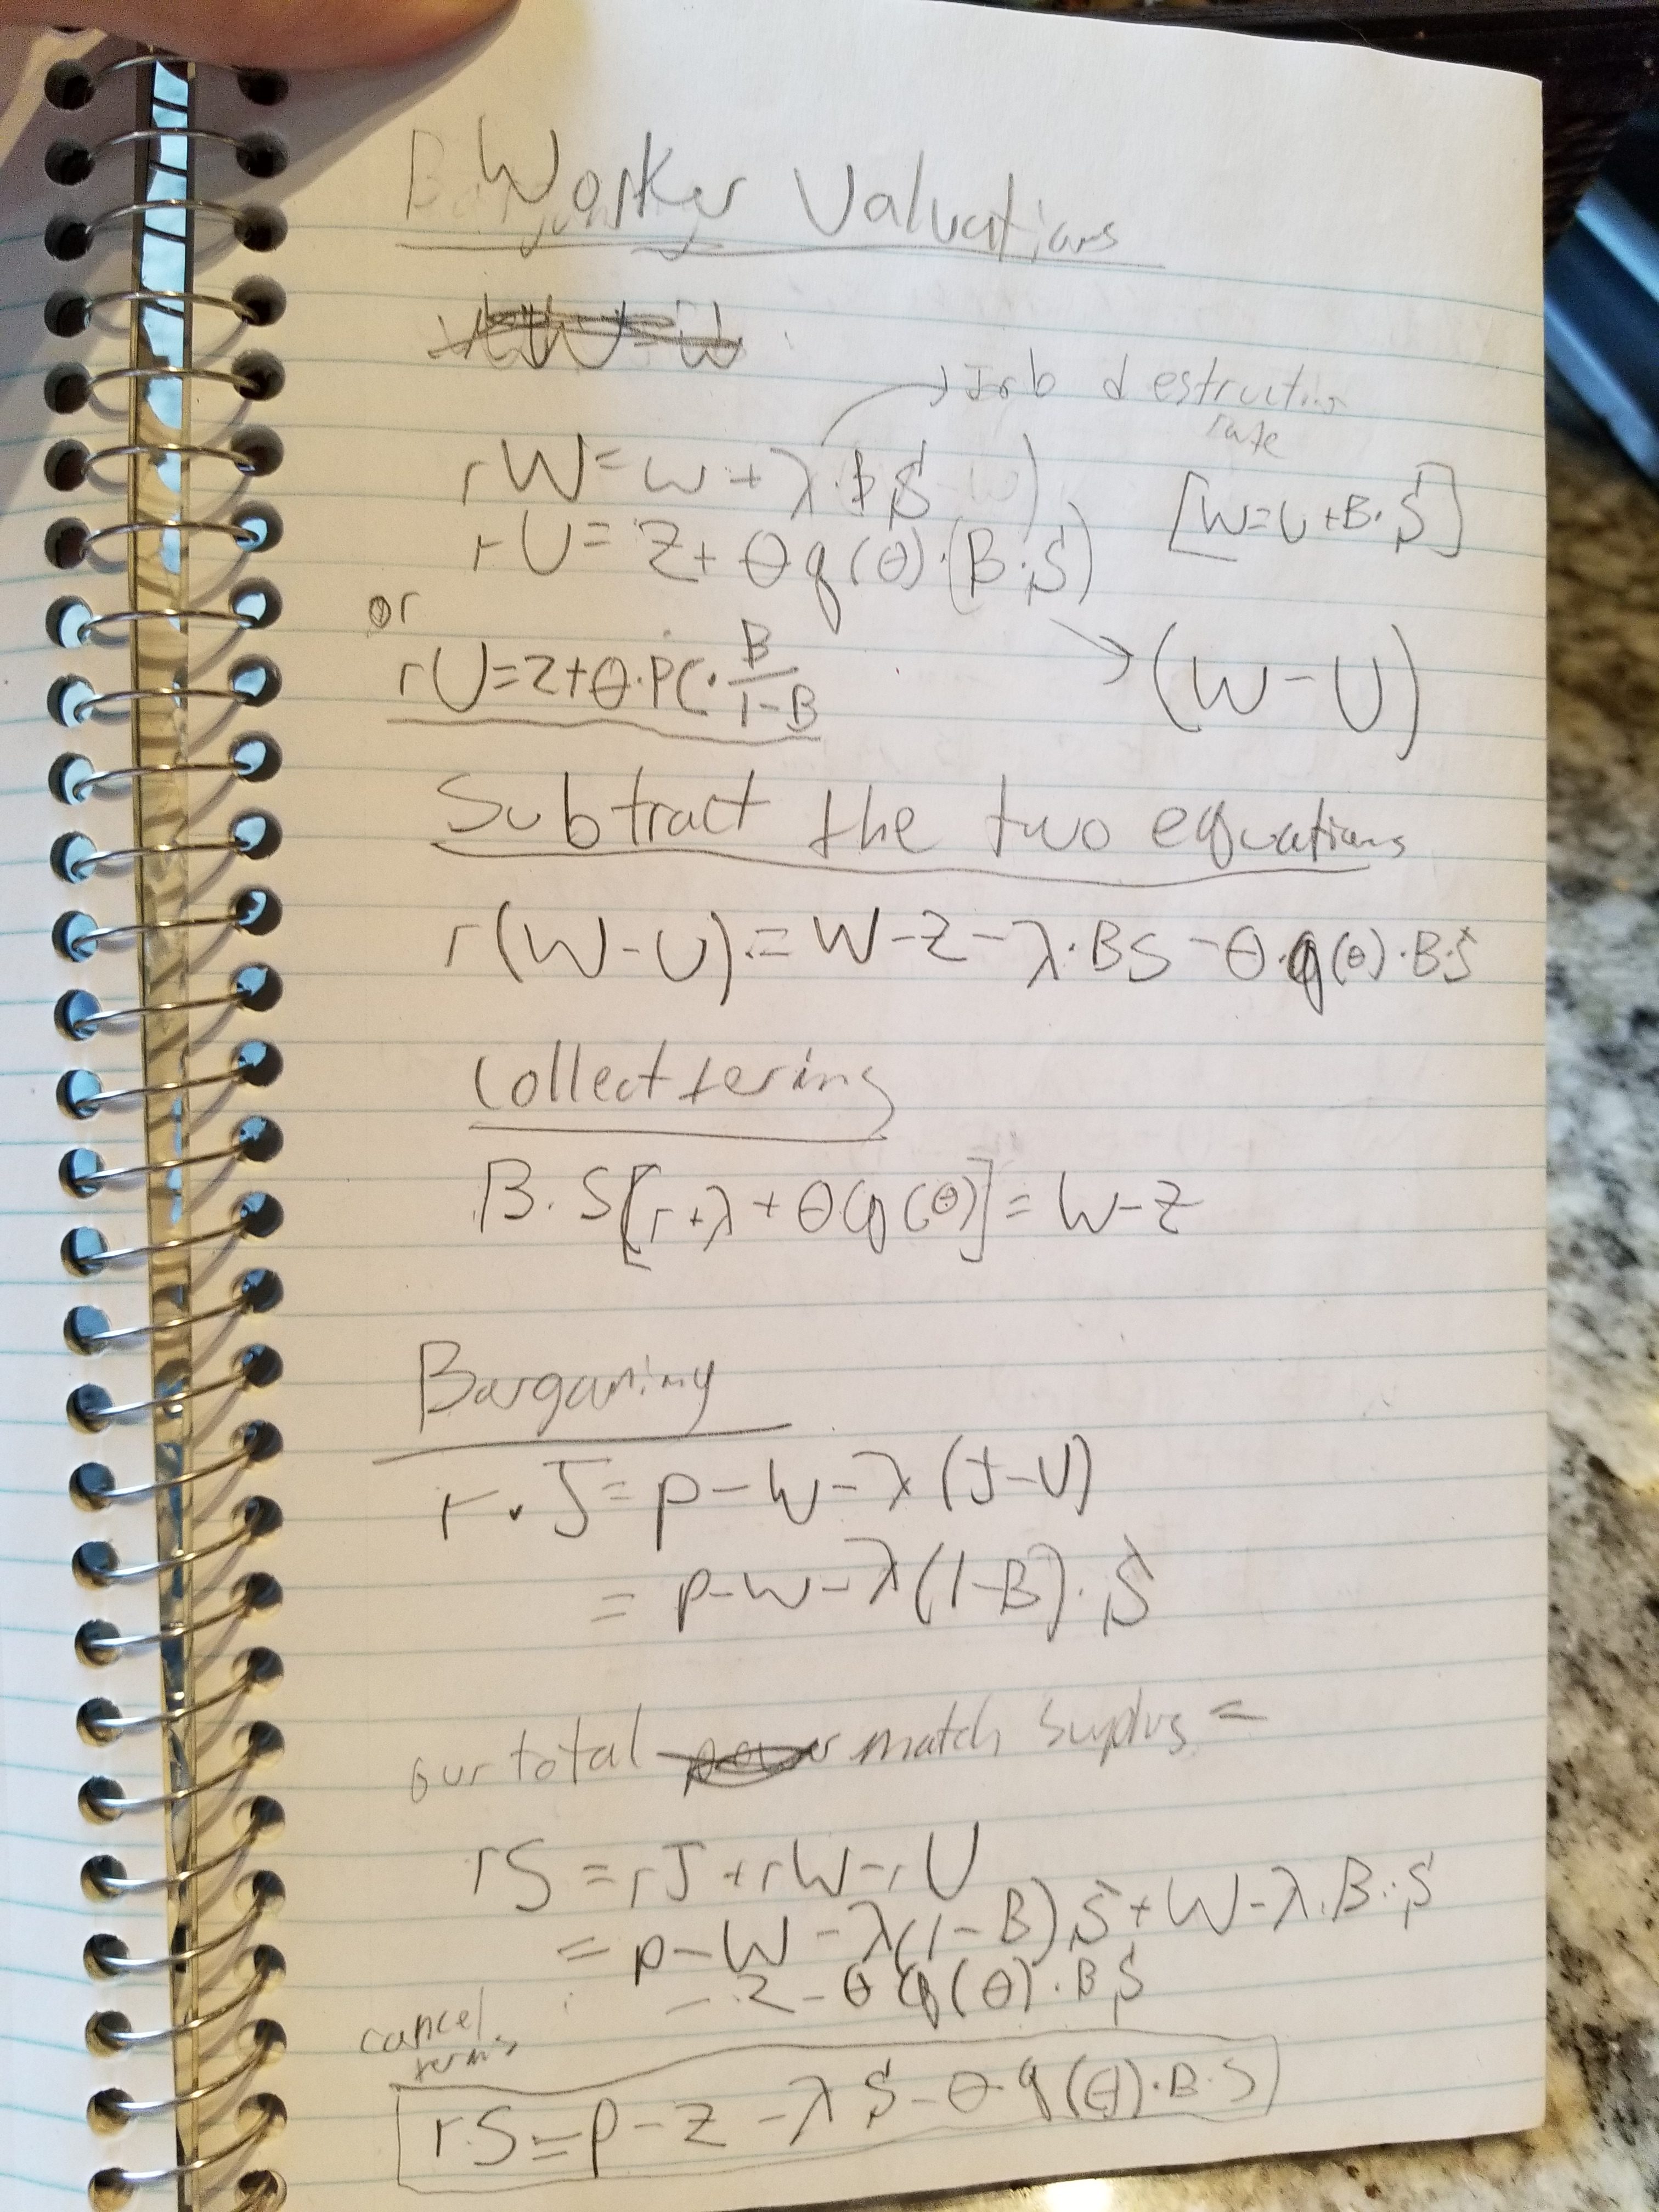 Worker Valuations
→ Job destruction
rate
rW = w + λ · B S
[W = U + B · S]
rU = z + θ q(θ) · (B · S)
→ (W - U)
or
rU = z + θ · PC · B/1-B
Subtract the two equations
r(W - U) = W - z - λ · BS - θ · q(θ) · B · S
Collect
B · S[r + λ + θ q(θ)] = W - z
Barganing
r · J = p - W - λ (J - V)
= p - w - λ (1 - B) · S
our total match surplus =
rS = rJ + rW - rU
= p - W - λ(1 - B) S + W - λ · B · S
- z - θ q(θ) · B S
cancel
terms
rS = p - z - λ S - θ q(θ) · B · S